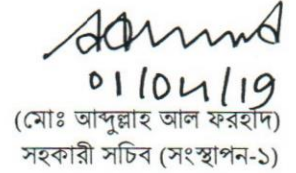 01/04/19
(মোঃ আব্দুল্লাহ আল ফরহাদ)
সহকারী সচিব (সংস্থাপন-১)